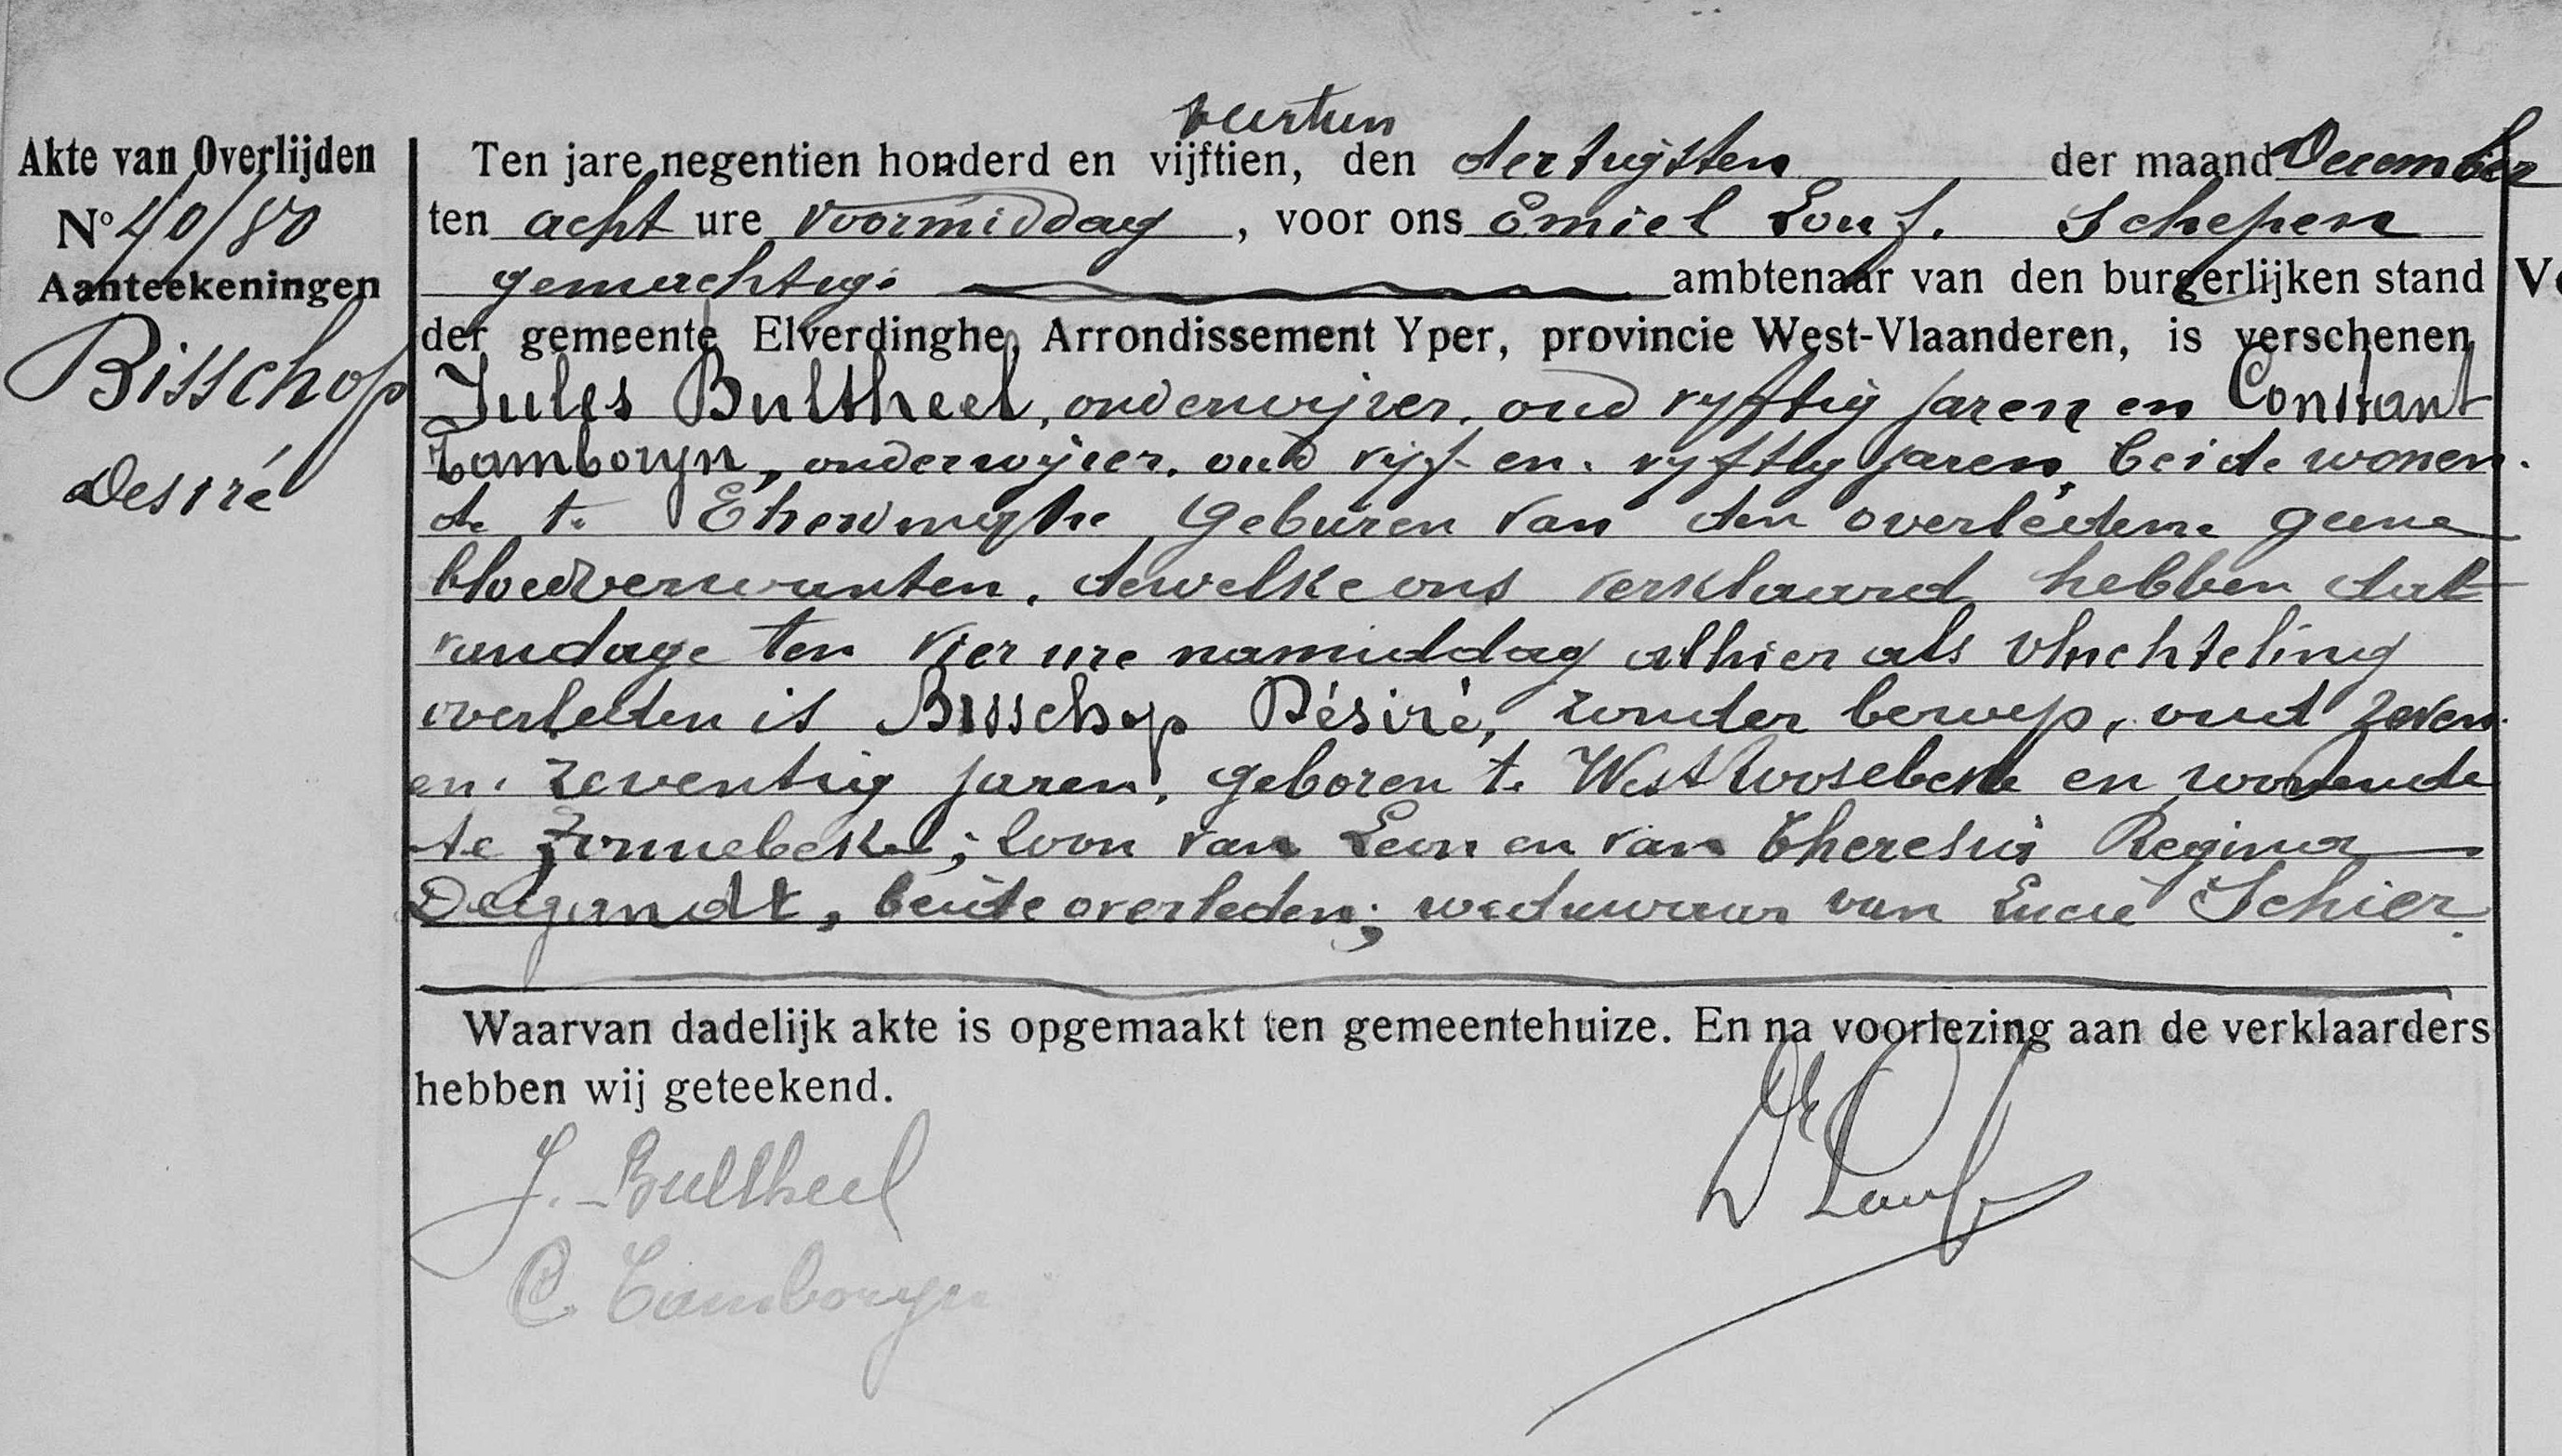 Akte van Overlijden
No 40/80
Aanteekeningen
Bisschop
Desiré
veertien
Ten jare negentien honderd en vijftien, den dertigsten der maand December
ten acht ure voormiddag, voor ons Emiel Louf. Schepen
gemachtig. ambtenaar van den burgerlijken stand
der gemeente Elverdinghe, Arrondissement Yper, provincie West-Vlaanderen, is verschenen
Jules Bultheel, onderwijzer, oud vyftig jaren en Constant
Tamboryn, onderwijzer, oud vijf en vyftig jaren, beide wonen
de te Elverdinghe Geburen van den overledene geene
bloedverwanten, dewelke ons verklaard hebben dat
vandage ten vier ure namiddag alhier als vluchteling
overleden is Bisschop Désiré, zonder beroep, oud zeven
en zeventig jaren, geboren te Westroosebeke en wonende
te Zonnebeke; zoon van Leon en van Theresia Regina
Deigandt, beide overleden; weduwaar van Lucie Schier.
Waarvan dadelijk akte is opgemaakt ten gemeentehuize. En na voorlezing aan de verklaarders
hebben wij geteekend.
Dr Louf
J. Bultheel
C. Tamboryn